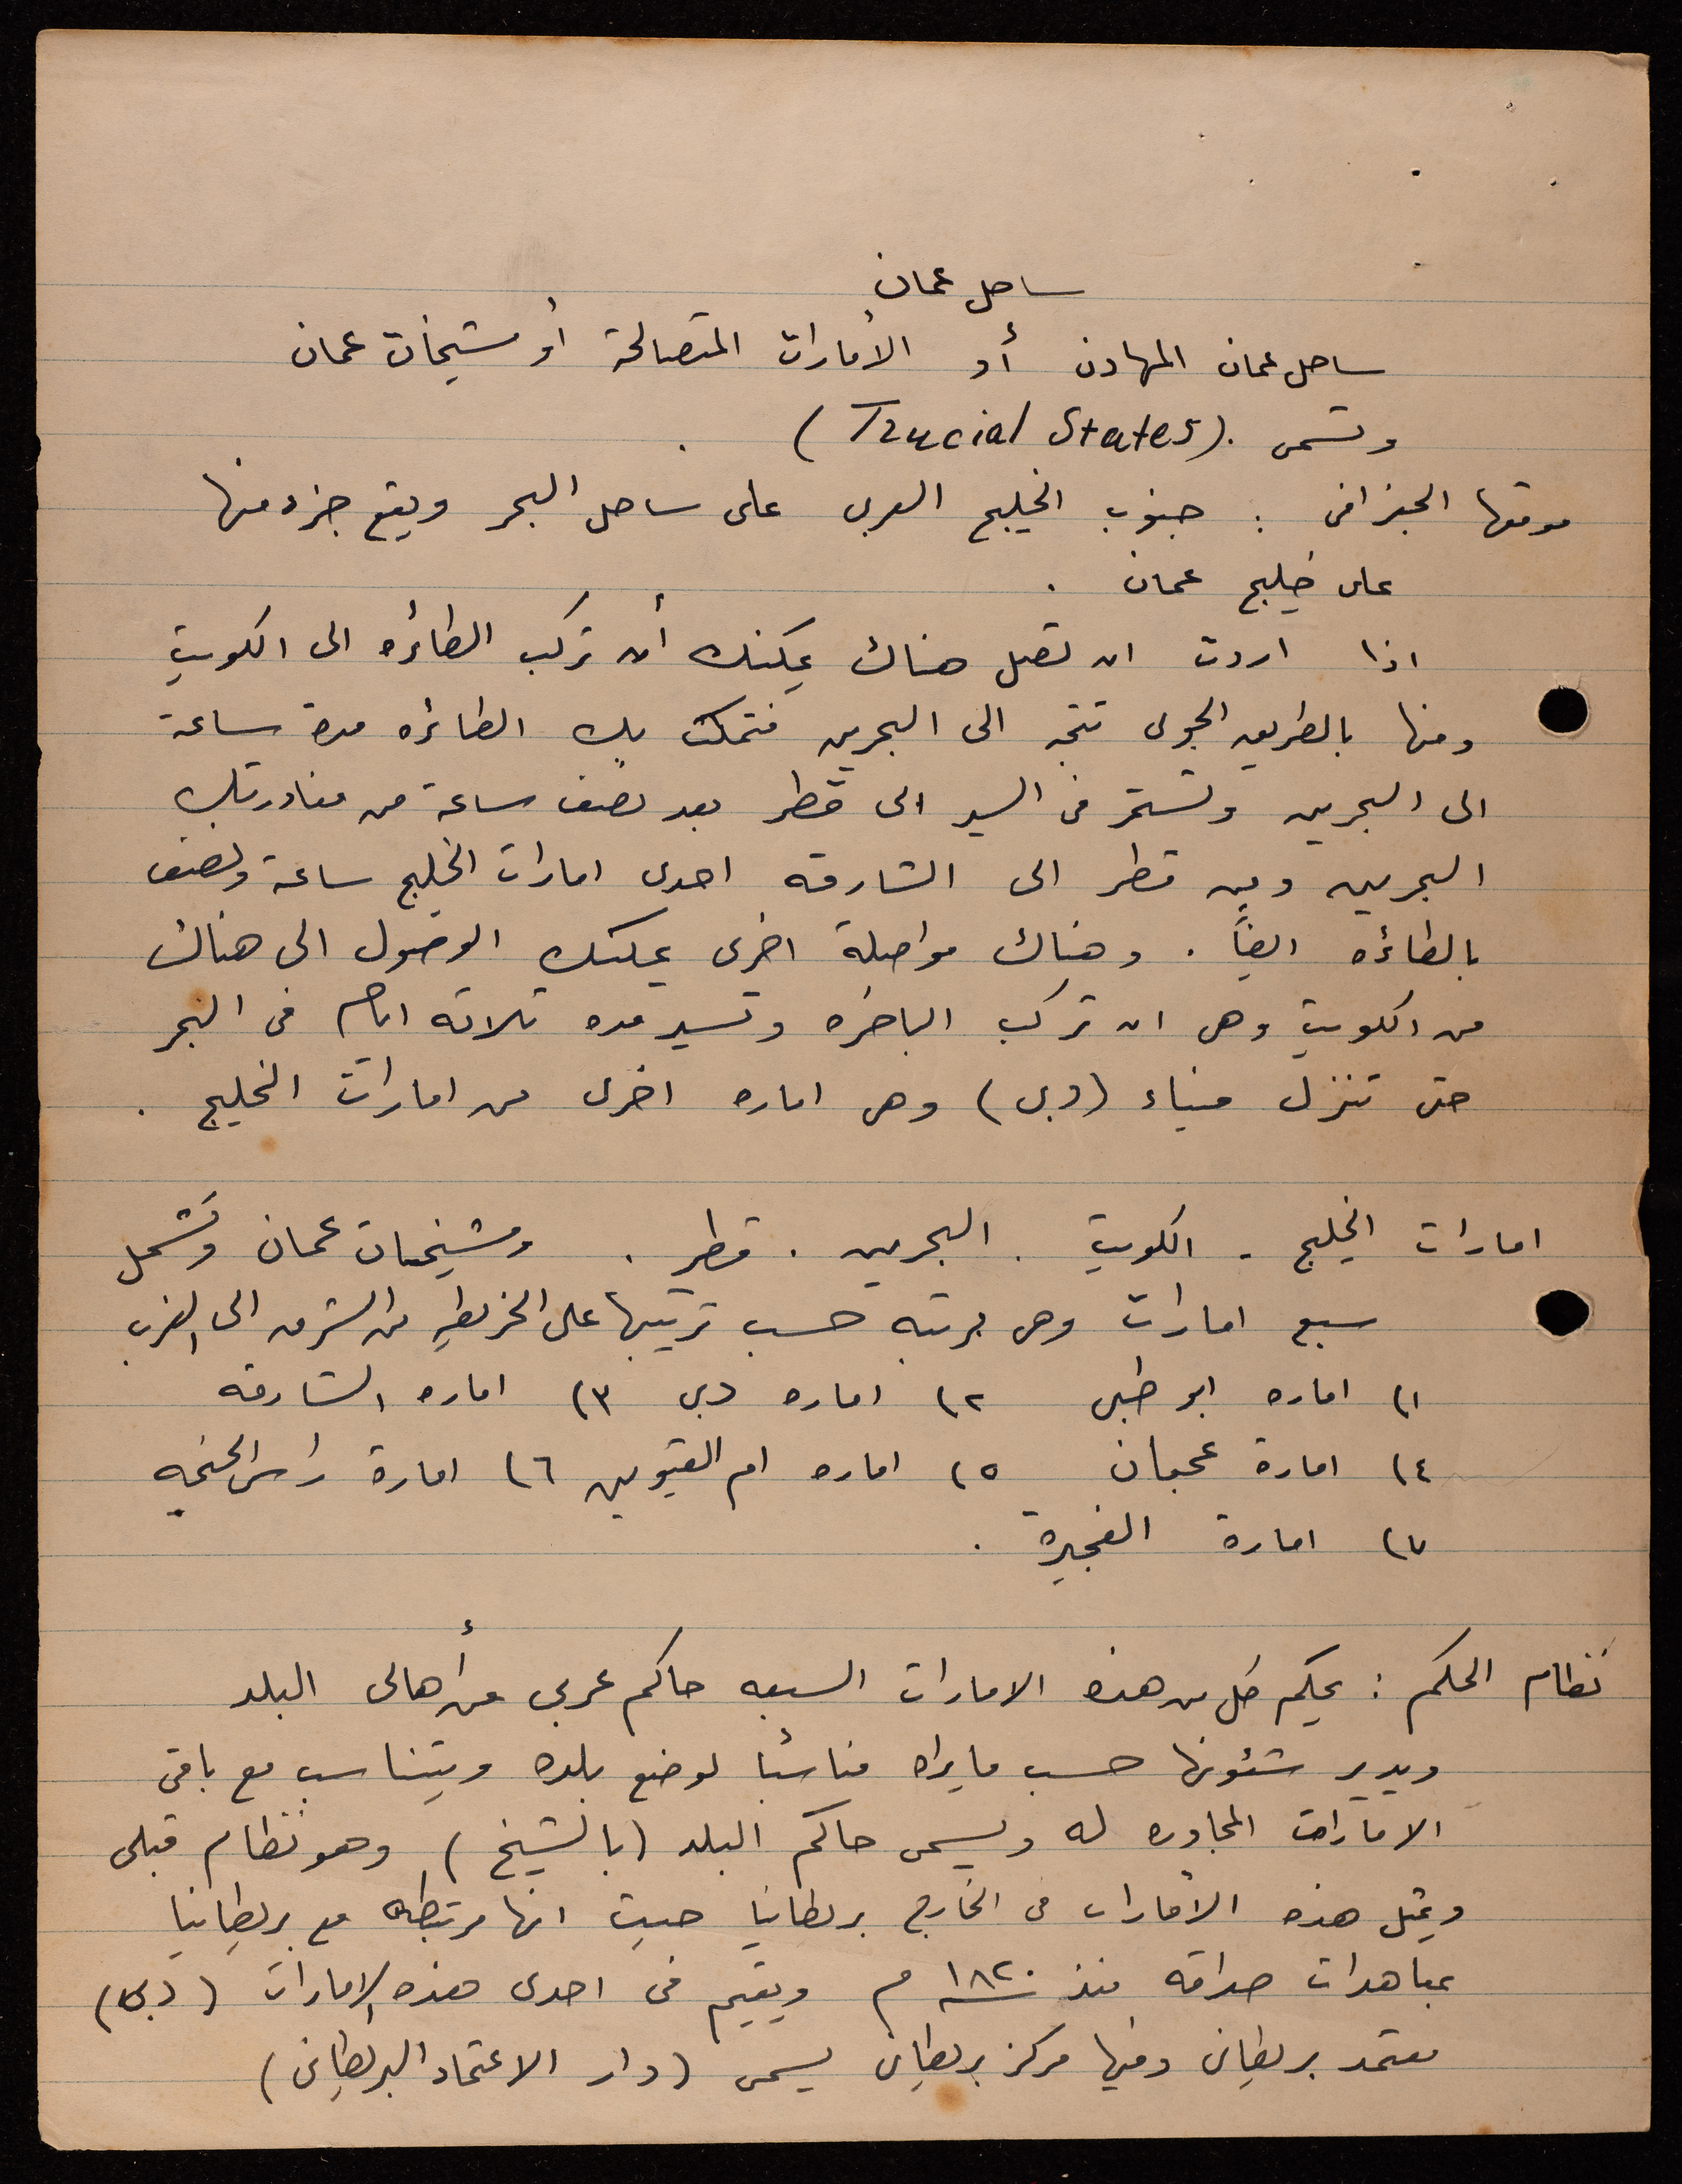 ساحل عمان
ساحل عمان المهادن أو الأمارات المتصالحة أو مشيخات عمان
وتسمى (Trucial States) .
موقعها الجغرافى : جنوب الخليج العربى على ساحل البحر ويقع جزء منها
على خليج عمان .
اذا اردت ان تصل هناك يمكنك أن تركب الطائره الى الكويت
ومنها بالطريق الجوى تتجه الى البحرين فتمكث بك الطائره مدة ساعة
الى البحرين وتستمر فى السير الى قطر بعد نصف ساعة من مغادرتك
البحرين ومن قطر الى الشارقه احدى امارات الخليج ساعة ونصف
بالطائره ايضاً . وهناك مواصلة اخرى يمكنك الوصول الى هناك
من الكويت وهى ان تركب الباخره وتسير مده ثلاثه ايام فى البحر
حتى تنزل ميناء (دبى) وهى اماره اخرى من امارات الخليج .
امارات الخليج - الكويت . البحرين . قطر . ومشيخات عمان وتشمل
سبع امارات وهى مرتبه حسب ترتيبها على الخريطه من الشرق الى الغرب
١) اماره ابو ظبى ٢) اماره دبى ٣) اماره الشارقه
٤) امارة عجمان ٥) اماره ام القيوين ٦) امارة راس الخيمه
٧) امارة الفجيرة .
نظام الحكم : يحكم كل من هذه الامارات السبعه حاكم عربى من أهالى البلد
ويدير شئونها حسب مايراه مناسبا لوضع بلده ويتناسب مع باقى
الامارات المجاوره له ويسمى حاكم البلد (بالشيخ) وهو نظام قبلى
ويمثل هذه الأمارات فى الخارج بريطانيا حيث انها مرتبطه مع بريطانيا
بمعاهدات صداقه منذ ١٨٢٠ م ويقيم فى احدى هذه الامارات (دبى)
معتمد بريطانى وفيها مركز بريطانى يسمى (دار الاعتماد البريطانى)